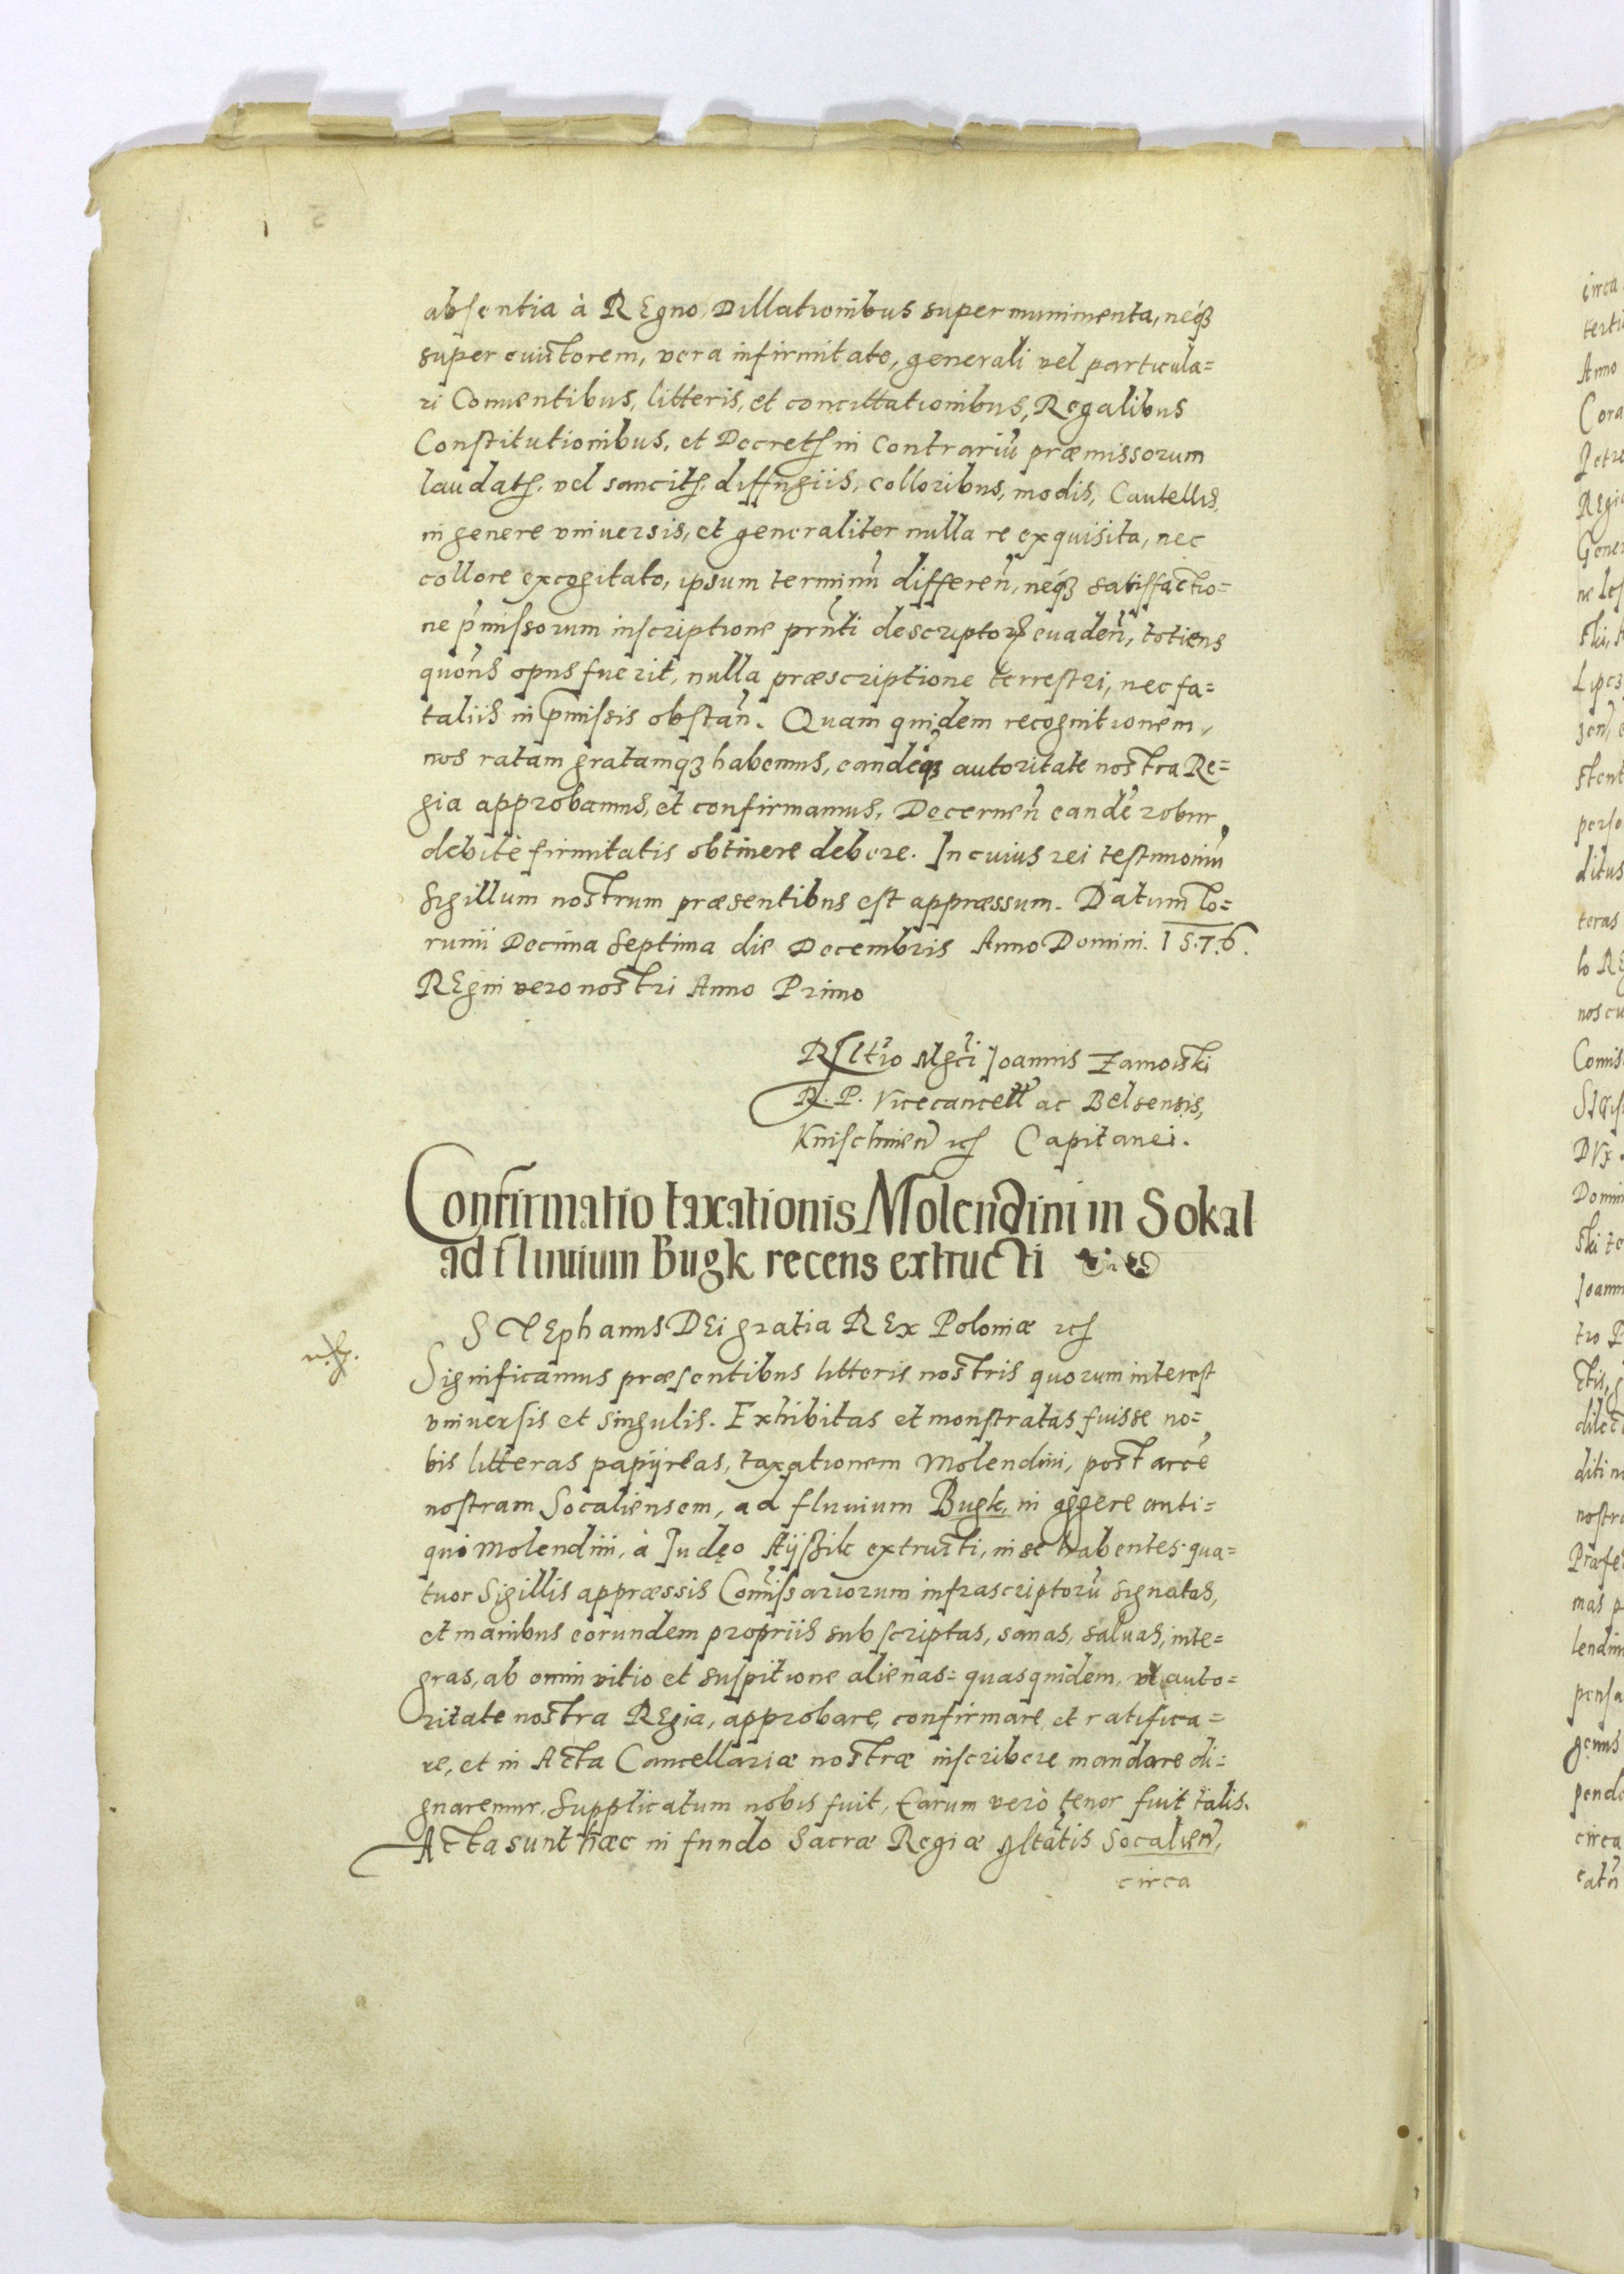 absentia à REgno, Dillationibus super munimenta, neq3
super euictorem, vera infirmitate, generali vel particula=
ri Conuentibus, litteris, et concittationibus, Regalibus
Constitutionibus, et Decretis in Contrariũ præmissorum
laudatis, vel sancitis, diffugiis, colloribus, modis, Cautellis,
in genere vniuersis, et generaliter nulla re exquisita, nec
collore excogitato, ipsum terminũ differeñ, neq3 satisfactio=
ne p̃missorum inscriptione prñti descriptorꝝ euadeñ, totiens
quoñs opus fuerit, nulla præscriptione terrestri, nec fa=
taliis in p̃missis obstañ. Quam quidem recognitionem,
nos ratam gratamq3 habemus, eandẽq3 autoritate nostra Re=
gia approbamus, et confirmamus, Decerneñ eandẽ robur
debitè firmitatis obtinere debere. In cuius rei testimoniũ
Sigillum nostrum præsentibus est appræssum. Datum To=
runii Decima Septima die Decembris Anno Domini. 1576.
REgni vero nostri Anno Primo
Rltio Mgci Joannis Zamoiski
R. P. Vicecancell ac Belsensis,
Knischineñ etc Capitanei.
Confirmatio taxationis Molendini in Sokal
ad fluuium Bugk recens extructi
STEphanus DEi gratia REx Poloniæ etc
Significamus præsentibus litteris nostris quorum interest
vniuersis et singulis. Exhibitas et monstratas fuisse no=
bis litteras papijreas, taxationem Molendini, post arcẽ
nostram Socaliensem, ad fluuium Bugk, in aggere anti=
quo Molendini, à Judęo Aijsßik extructi, in se habentes. qua=
tuor Sigillis appræssis Com̃issariorum infrascriptorũ signatas,
et manibus eorundem propriis subscriptas, sanas, saluas, inte=
gras, ab omni vitio et suspitione alienas= quasquidem, vt auto=
ritate nostra REgia, approbare, confirmare, et ratifica=
re, et in Acta Cancellariæ nostræ inscribere mandare di=
gnaremur, Supplicatum nobis fuit, Earum verò tenor fuit talis.
Acta sunt hæc in fundo Sacræ Regiæ Mtatis Socalieñ,
circa